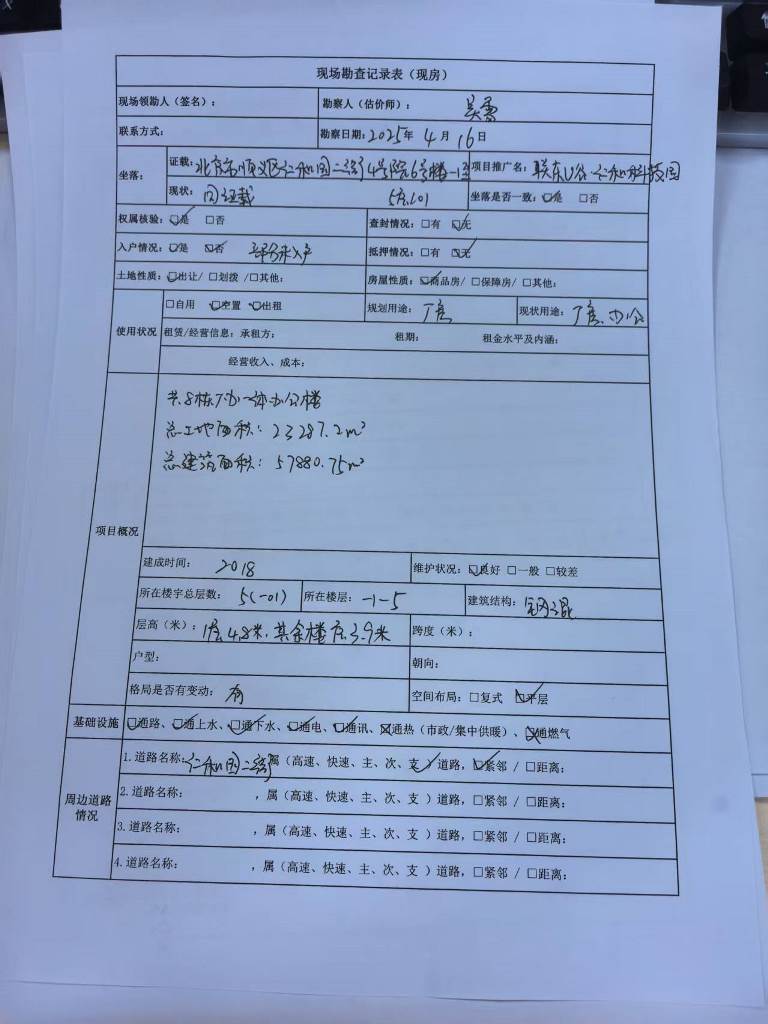 现场勘查记录表（现房）
现场领勘人（签名）： 勘察人（估价师）： 吴雷
联系方式： 勘察日期：2025年 4 月 16 日
坐落： 证载：北京市顺义区仁和园二街4号院6号楼-1至5层101 项目推广名：联东U谷·仁和科技园
现状： 同证载 坐落是否一致：☑是 □否
权属核验：☑是 □否 查封情况：□有 ☑无
入户情况：☑是 ☑否 部分未入户 抵押情况：□有 ☑无
土地性质：☑出让/ □划拨 /□其他： 房屋性质：☑商品房/ □保障房/ □其他：
使用状况 □自用 ☑空置 ☑出租 规划用途： 厂房 现状用途： 厂房、办公
租赁/经营信息：承租方： 租期： 租金水平及内涵：
经营收入、成本：
项目概况
共8栋厂办一体办公楼
总土地面积：23287.2m²
总建筑面积：57880.75m²
建成时间： 2018 维护状况：☑良好 □一般 □较差
所在楼宇总层数： 5(-01) 所在楼层： -1-5 建筑结构： 钢混
层高（米）：1层4.8米，其余楼层3.9米 跨度（米）：
户型： 朝向：
格局是否有变动： 有 空间布局：□复式 ☑平层
基础设施 ☑通路、☑通上水、☑通下水、☑通电、☑通讯、☒通热（市政/集中供暖）、☒通燃气
周边道路情况 1.道路名称：仁和园二街 属（高速、快速、主、次、支✓）道路，☑紧邻 / □距离：
2.道路名称： ，属（高速、快速、主、次、支 ）道路，□紧邻 / □距离：
3.道路名称： ，属（高速、快速、主、次、支 ）道路，□紧邻 / □距离：
4.道路名称： ，属（高速、快速、主、次、支 ）道路，□紧邻 / □距离：